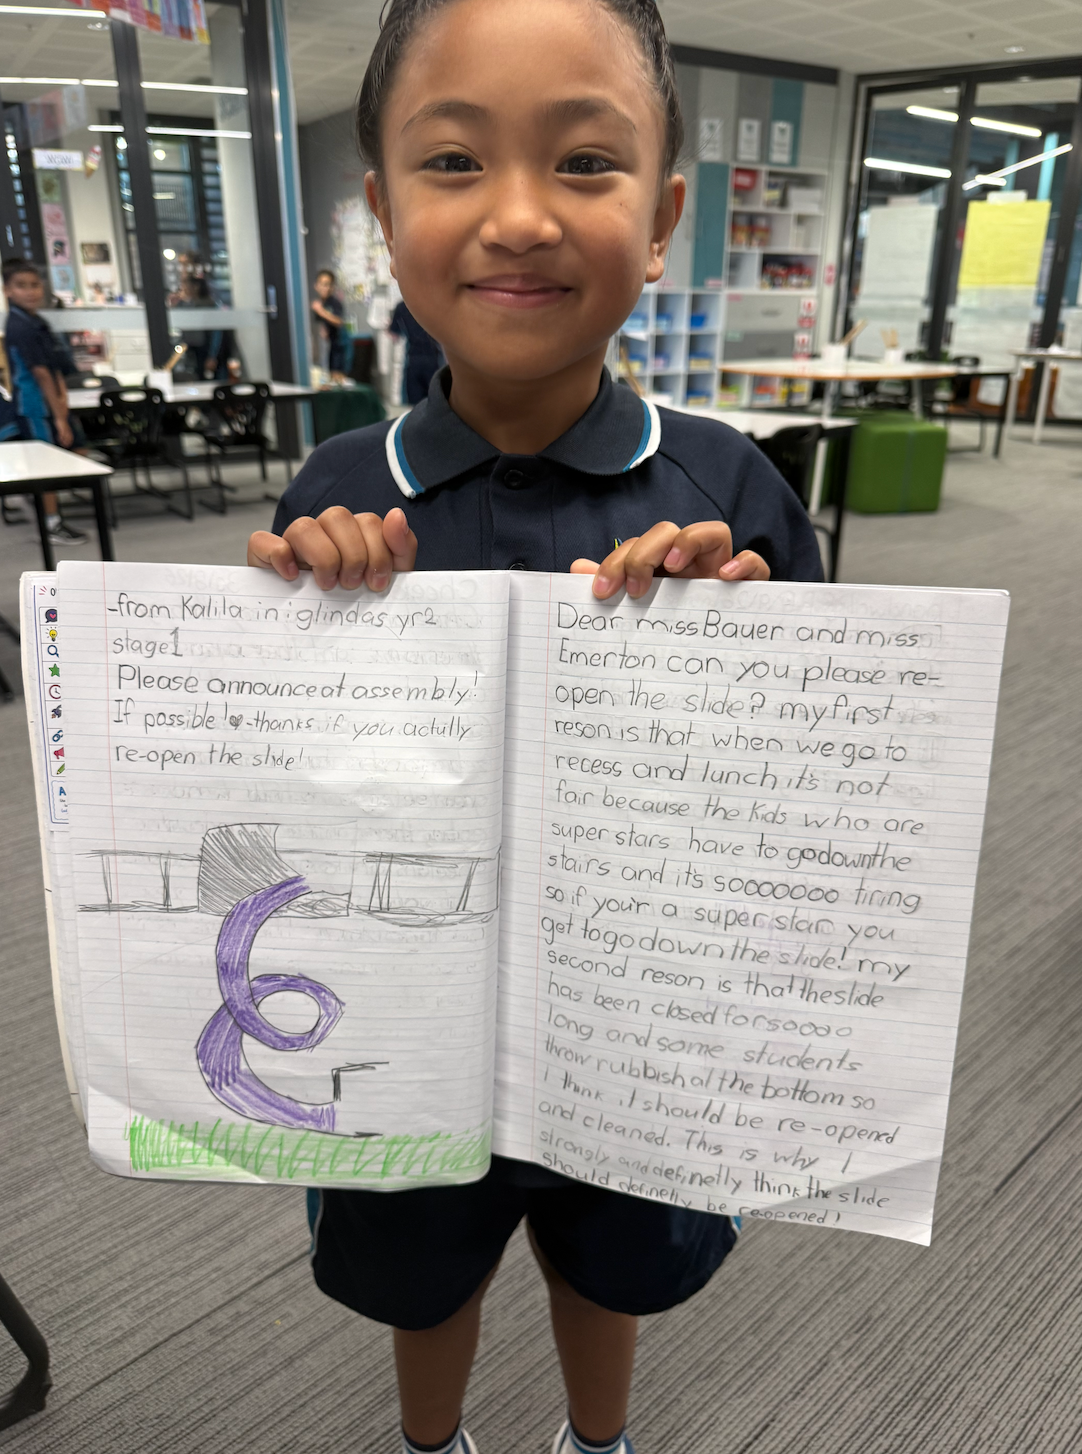 -from Kalila in iglindas yr2
stage1
Please announce at assembly!
If possible! -thanks if you actully
re-open the slide!
Dear miss Bauer and miss
Emerton can you please re-
open the slide? my first
reson is that when we go to
recess and lunch it's not
fair because the kids who are
super stars have to go down the
stairs and it's sooooooo tiring
so if you'r a super star you
get to go down the slide! my
second reson is that the slide
has been closed for soooo
long and some students
throw rubbish at the bottom so
I think it should be re-opened
and cleaned. This is why I
strongly and definetly think the slide
should definetly be re-opened!